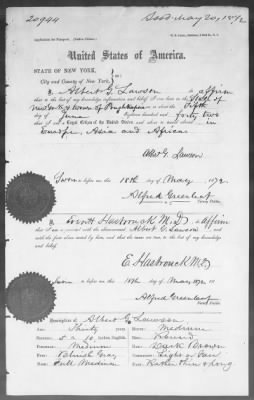 20944
Issd May 20, 1872
United States of America.
STATE OF NEW YORK,
City and County of New York,
I, Albert G. Lawson do affirm
that to the best of my knowledge, information and belief, I was born in the State of
New York, town of Poughkeepsie on or about the Fifth
day of June Eighteen hundred and forty two
that I am a Loyal Citizen of the United States, and about to travel in
Europe, Asia and Africa
Albert G. Lawson
Sworn before me this 18th day of May 1872
Alfred Greenleaf
Notary Public
I, Everitt Hasbrouck M.D. do Affirm
that I am acquainted with the above-named Albert G. Lawson and
and the facts above stated by him, and that the same are true, to the best of my knowledge
and belief.
E. Hasbrouck M.D.
Sworn before me this 18th day of May 1872
Alfred Greenleaf
Notary Public
Description of Albert G. Lawson
Age: Thirty years. Mouth: Medium
Stature: 5 a 10 inches, English. Chin: Round
Forehead: Medium Hair: Dark Brown
Eyes: Bluish Gray Complexion: Light or Fair
Nose: Full Medium Face: Rather thin & Long